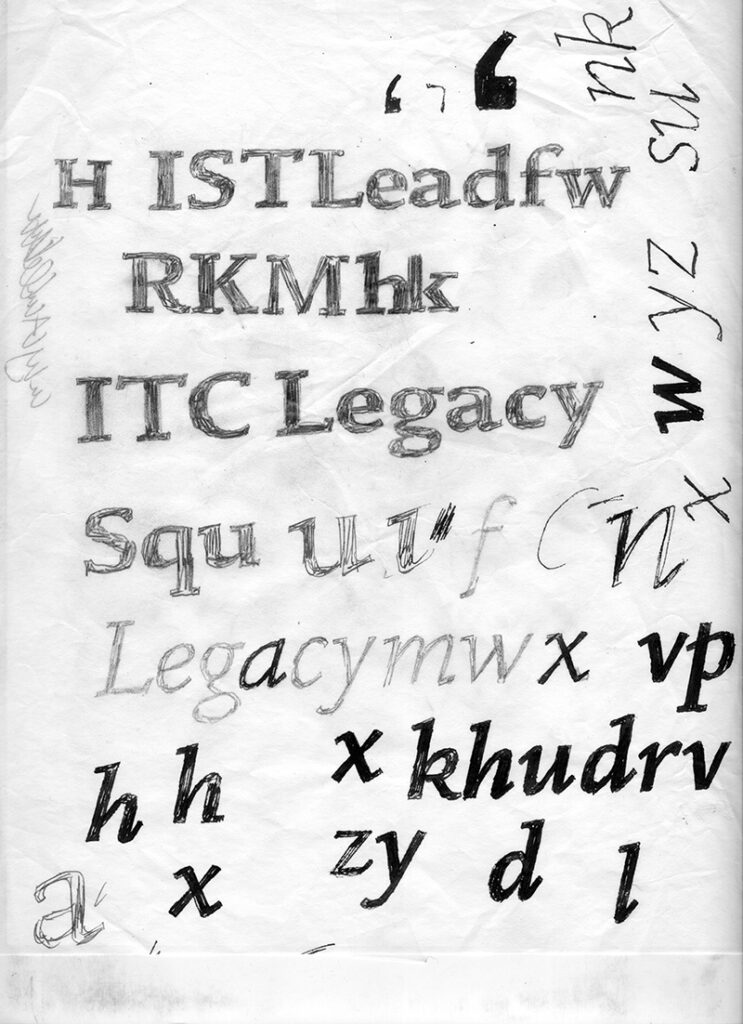 ‘ ‘
H ISTLeadfw
RKMhk
ITC Legacy
Squ u u f n
Legacymwx vp
x khudrv
h h
zy d l
a x
nk
su
w yz
x